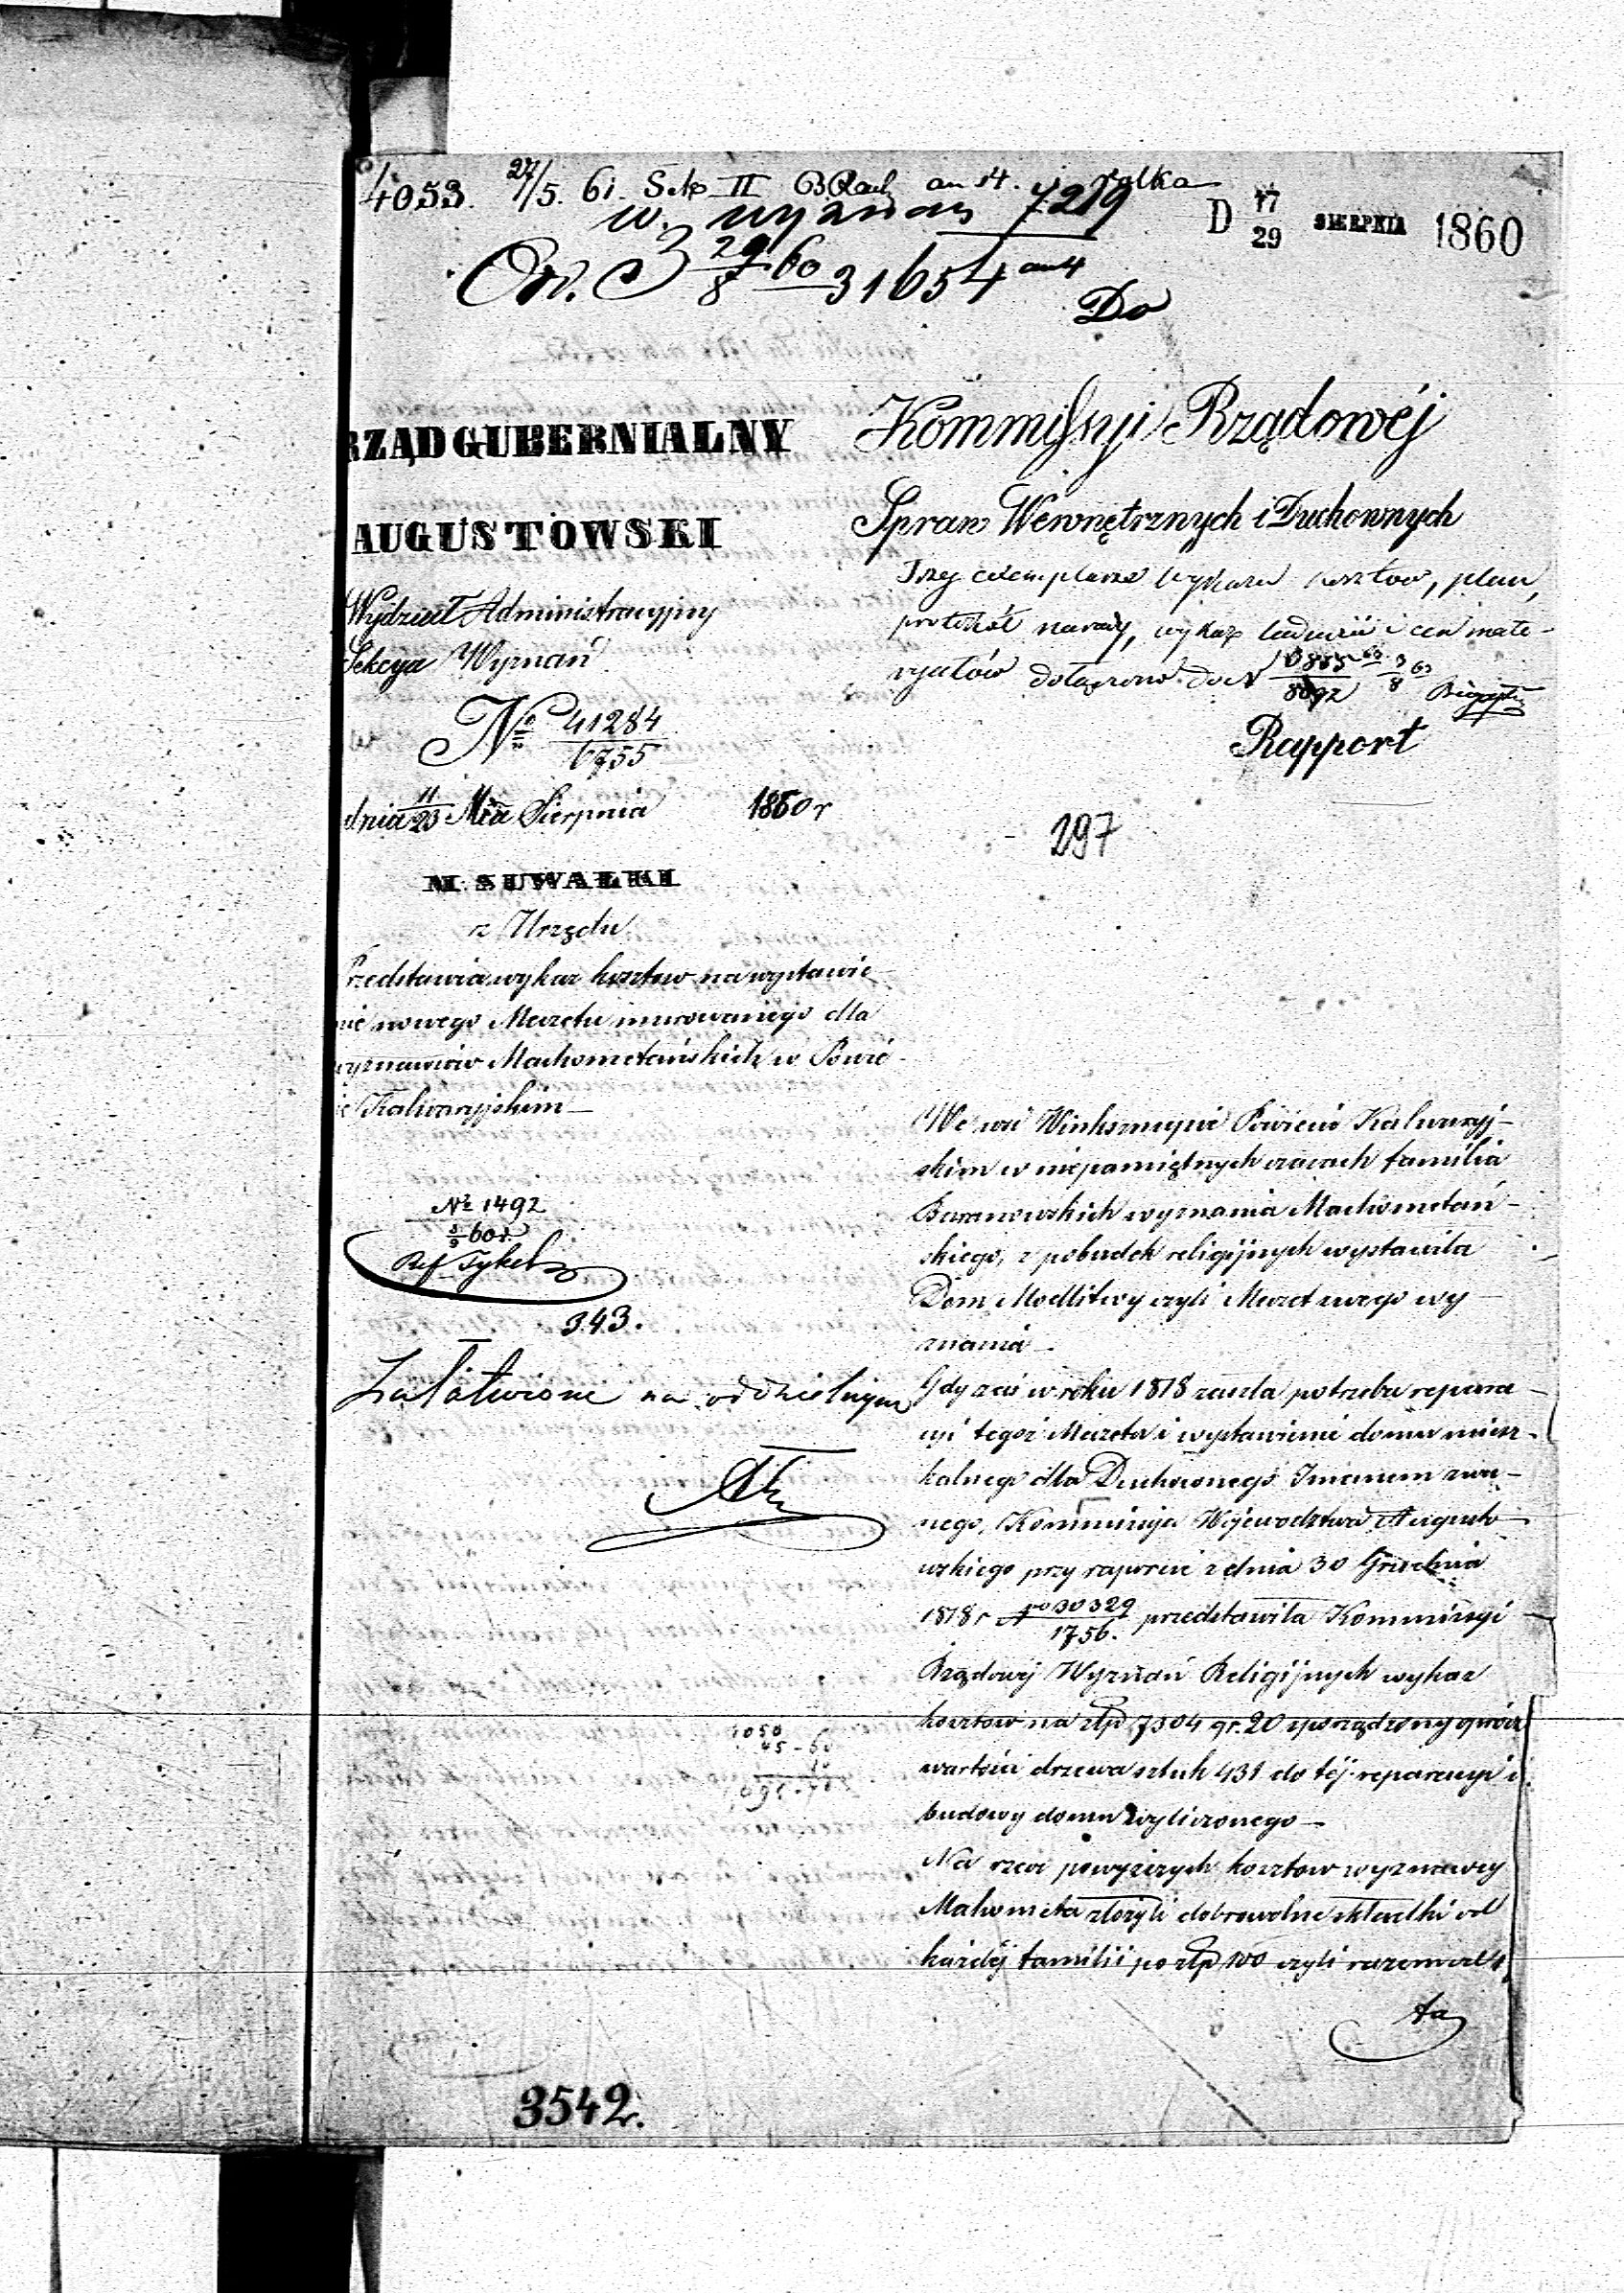 4053. 27/5. 61. Sekp II B Rach an 14.
w. wyznań 7219
D 17/29 SIERPNIA 1860
29/8 60 31654 an 4
Do
RZĄD GUBERNIALNY
AUGUSTOWSKI
Wydział Administracyjny
Sekcya Wyznań
No 41284/6755
dnia 11/23 Mca Sierpnia 1860 r
M. SUWAŁKI
z Urzędu
Przedstawia wykaz kosztow na wystawie-
nie nowego Meczetu murowanego dla
wyznawców Machometańskich w Powie-
cie Kalwaryjskim —
No 1492
60 r.
Ref Tykel
343.
Załatwione na oddzielnym
1050
45 - 60
10
1095 - 70
Kommissyi Rządowéj
Spraw Wewnętrznych i Duchownych
Trzy exemplarze wykazu kosztów, plan,
protokół narady, wykaz ludności i cen mate-
ryałów dołączono do N
Rapport
297
We wsi Winksznupie Powiecie Kalwaryj-
skim w niepamiętnych czasach familia
Baranowskich wyznania Machometań-
skiego, z pobudek religijnych wystawiła
Dom Modlitwy czyli Meczet swego wy-
znania —
Gdy zaś w roku 1818 zaszła potrzeba repara-
cyi tegoż Meczetu i wystawienie domu miesz-
kalnego dla Duchownego Imamem zwa-
nego, Kommissya Wojewodztwa Augusto-
wskiego przy raporcie z dnia 30 Grudnia
1818 r No 30329/1756. przedstawiła Kommissyi
Rządowej Wyznań Religijnych wykaz
kosztow na złp 7304 gr. 20 sporządzony oprócz
wartości drzewa sztuk 431 do téj reparacyi i
budowy domu wyliczonego —
Na rzecz powyższych kosztow wyznawcy
Mahometa złożyli dobrowolne składki od
każdéj familii po złp 100 czyli razem od 4
ta
3542.